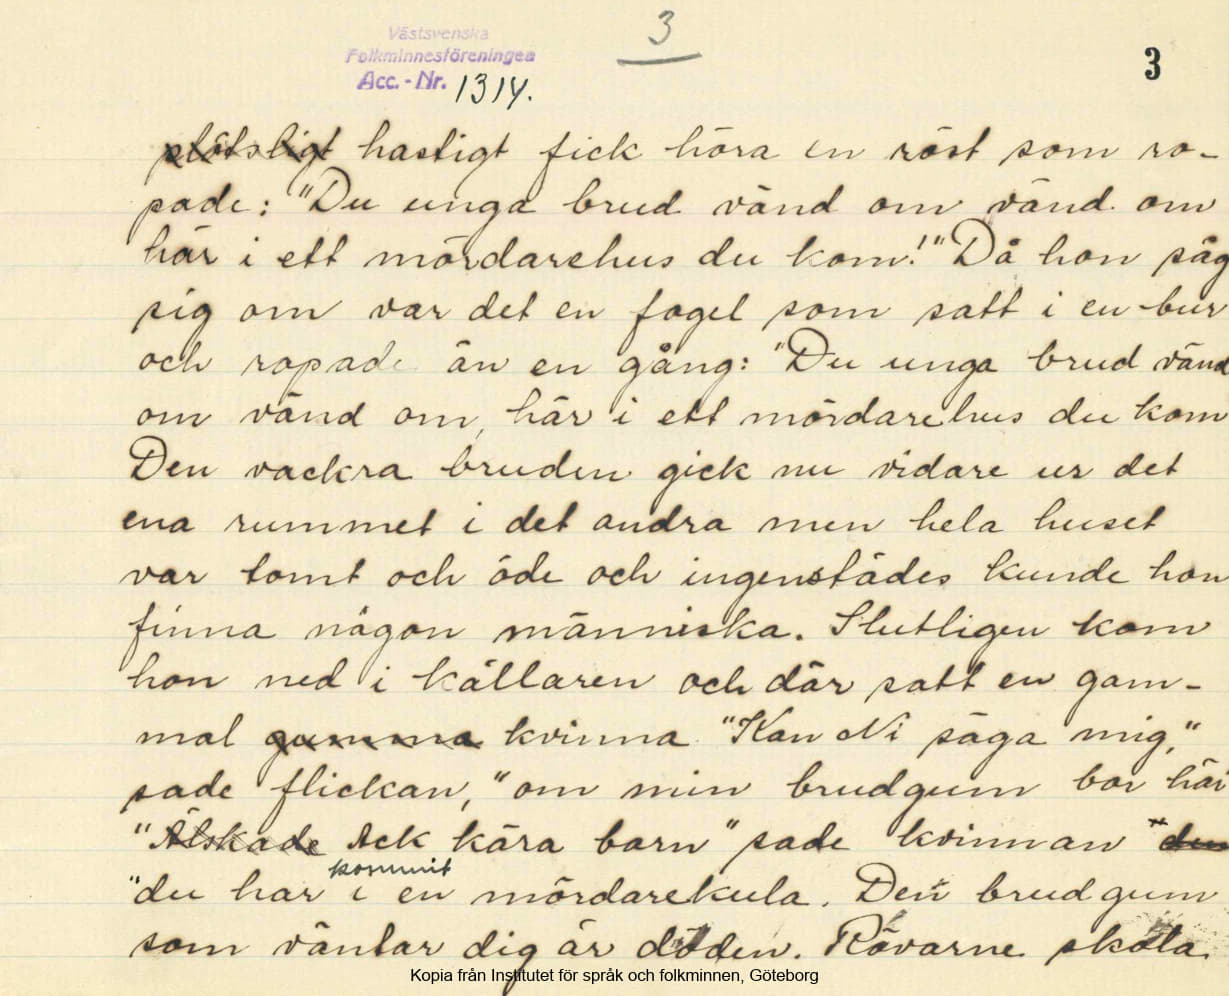 3
Västsvenska
Folkminnesföreningen
Acc.-Nr. 1314.
3
plötsligt hastigt fick höra en röst som ro-
pade: "Du unga brud vänd om vänd om
här i ett mördarehus du kom!" Då hon såg
sig om var det en fogel som satt i en bur
och ropade än en gång: "Du unga brud vänd
om vänd om, här i ett mördarehus du kom
Den vackra bruden gick nu vidare ur det
ena rummet i det andra men hela huset
var tomt och öde och ingenstädes kunde hon
finna någon människa. Slutligen kom
hon ned i källaren och där satt en gam-
mal gumma kvinna "Kan Ni säga mig,"
sade flickan, "om min brudgum bor här
"Älskade Ack kära barn" sade kvinnan "du
kommit
"du har i en mördarekula. Den brudgum
som väntar dig är döden. Rövarne skola
Kopia från Institutet för språk och folkminnen, Göteborg